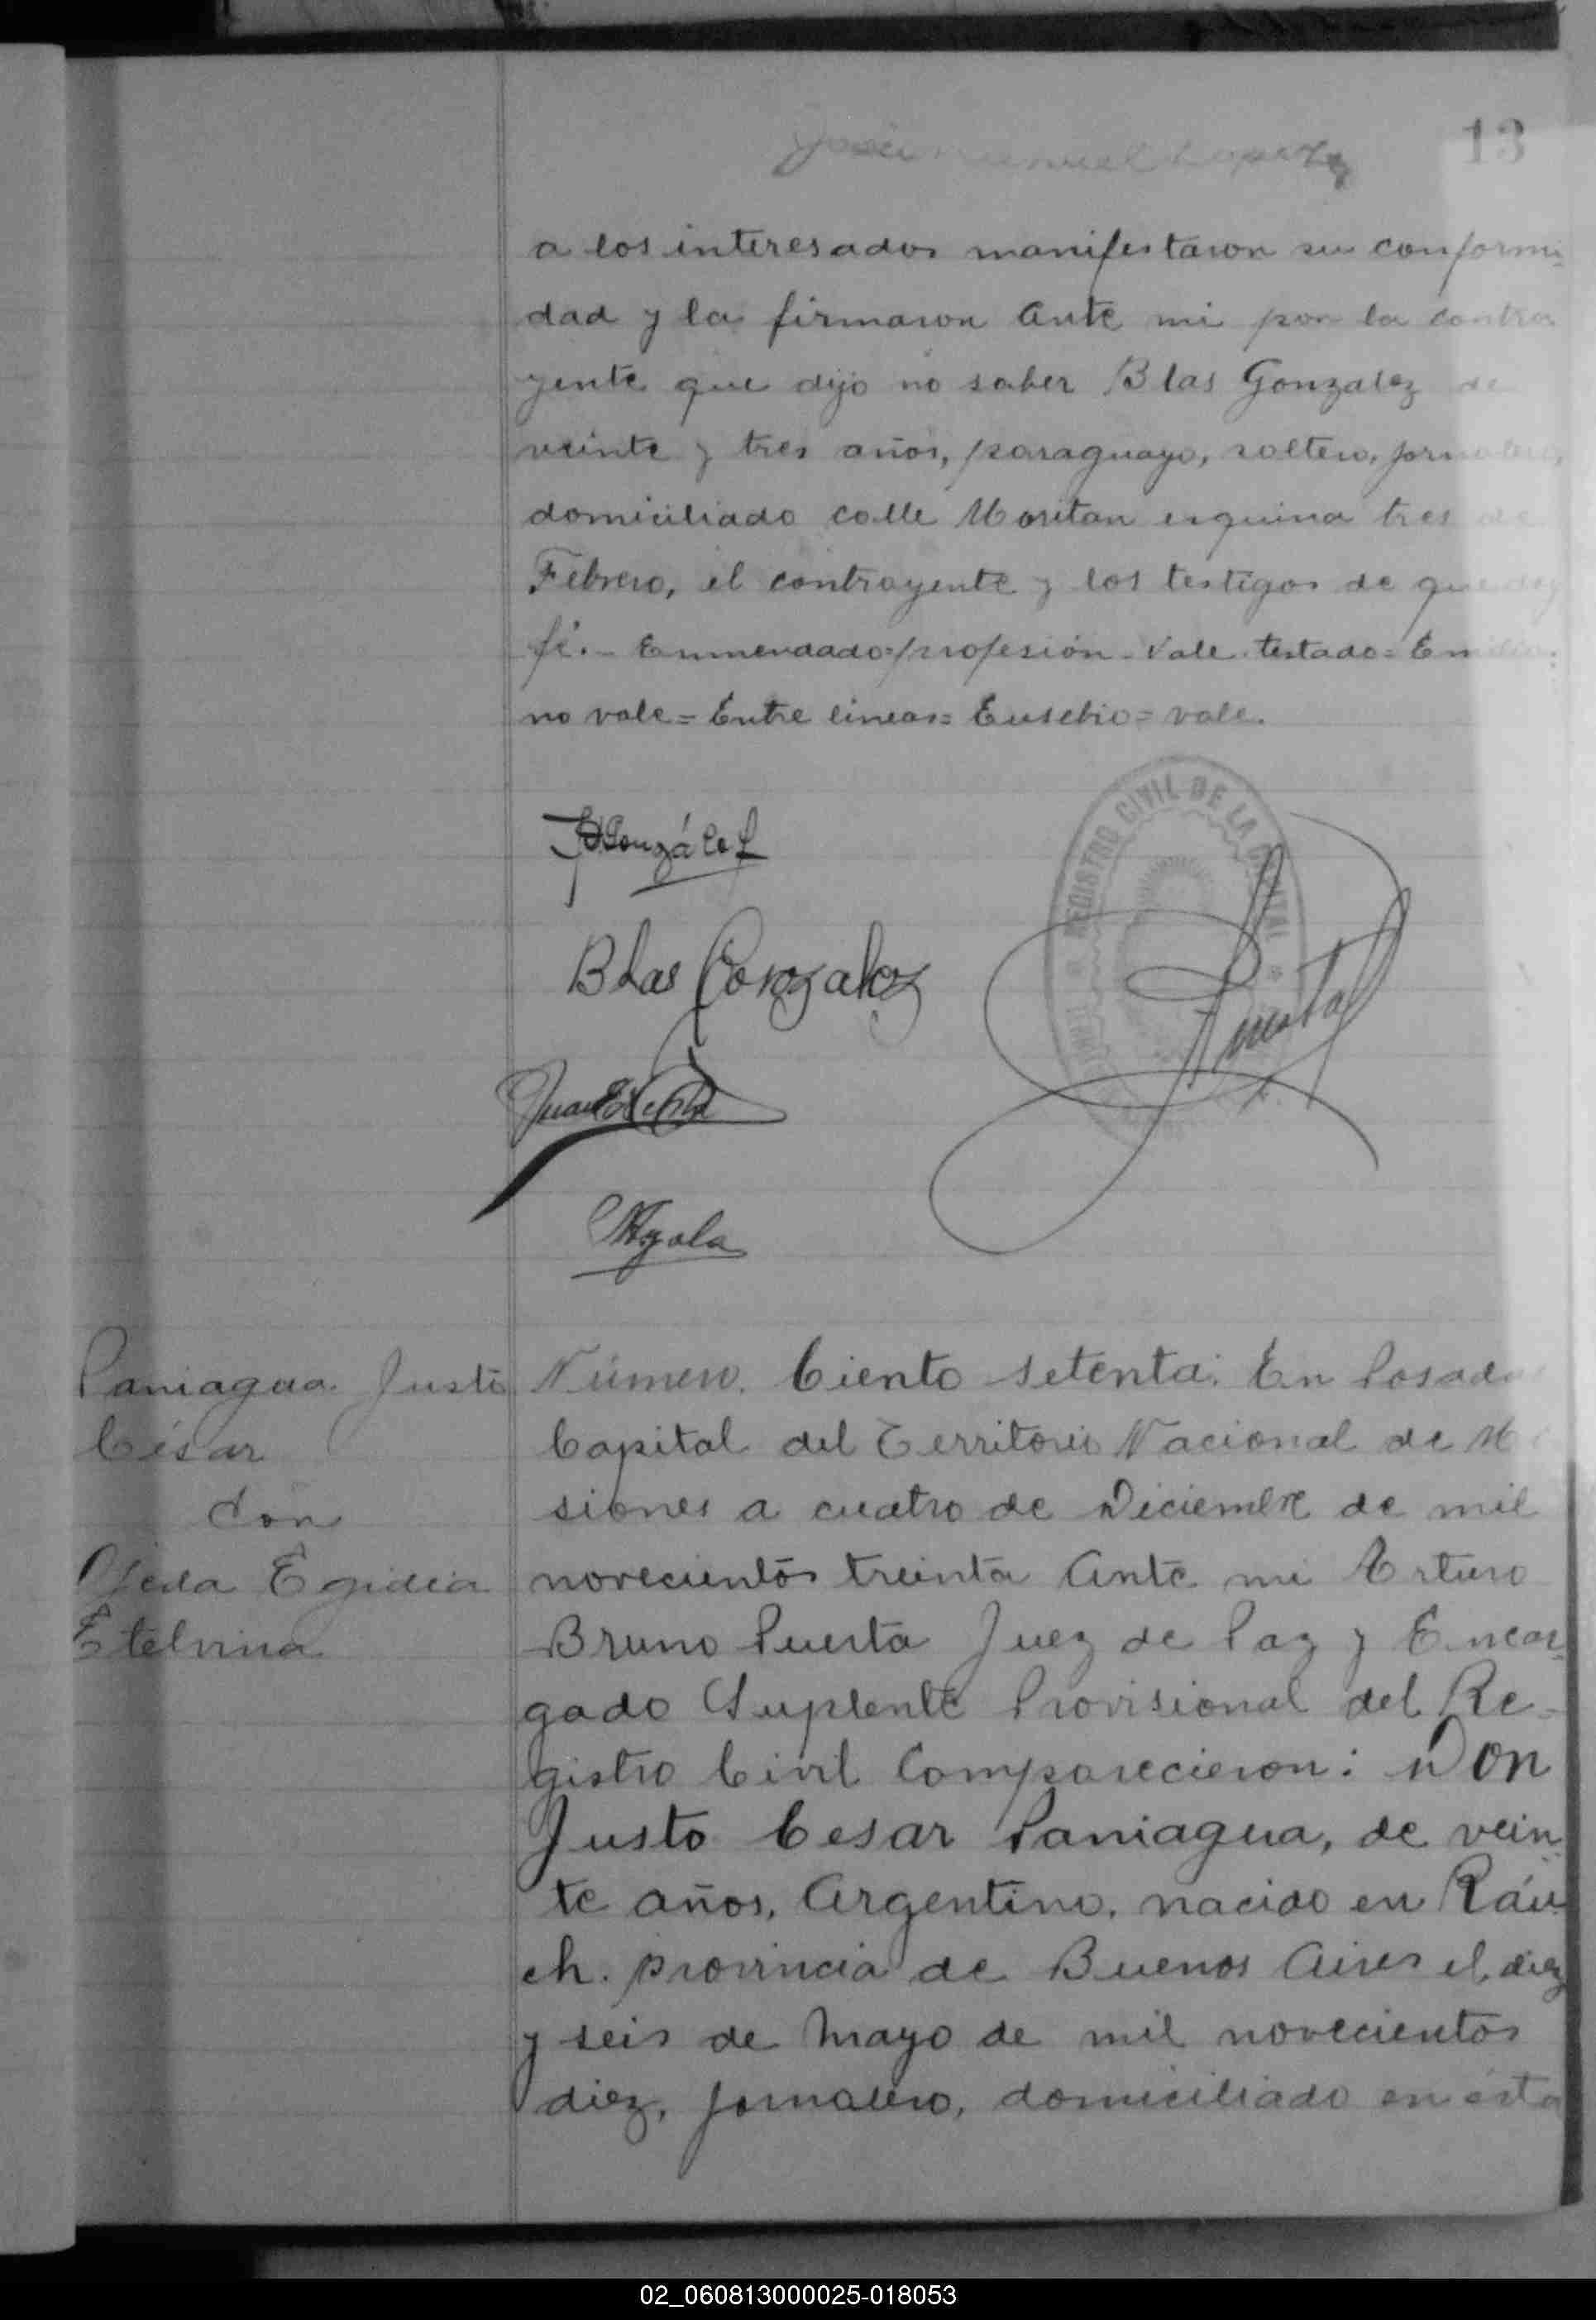 13
a los interesados manifestaron su conformi-
dad y la firmaron Ante mi por la contra
yente que dijo no saber Blas Gonzalez de
veinte y tres años, paraguayo, soltero, jornalero,
domiciliado calle Moritan esquina tres de
Febrero, el contrayente y los testigos de que doy
fé.- Enmendado=profesión-Vale testado=Emilio:
no vale=Entre líneas=Eusebio=vale.
REGISTRO CIVIL DE LA CAPITAL
González
Blas Gonzalez
Puerta
Juan
Ayala
Paniagua Justo
César
con
Ojeda Egidia
Etelvina
Número. Ciento setenta: En Posadas
Capital del Territorio Nacional de Mi
siones a cuatro de Diciembre de mil
novecientos treinta Ante mi Arturo
Bruno Puerta Juez de Paz y Encar-
gado Suplente Provisional del Re-
gistro Civil Comparecieron: Don
Justo Cesar Paniagua, de vein
te años, Argentino, nacido en Ráu
ch. provincia de Buenos Aires el diez
y seis de Mayo de mil novecientos
diez, jornalero, domiciliado en ésta
02_060813000025-018053